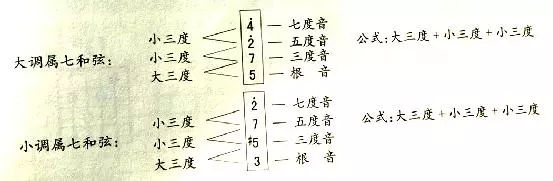 小三度 4̇ — 七度音
大调属七和弦： 小三度 2̇ — 五度音 公式：大三度+小三度+小三度
大三度 7 — 三度音
5 — 根 音
小三度 2̇ — 七度音
小调属七和弦： 小三度 7 — 五度音 公式：大三度+小三度+小三度
大三度 #5 — 三度音
3 — 根 音